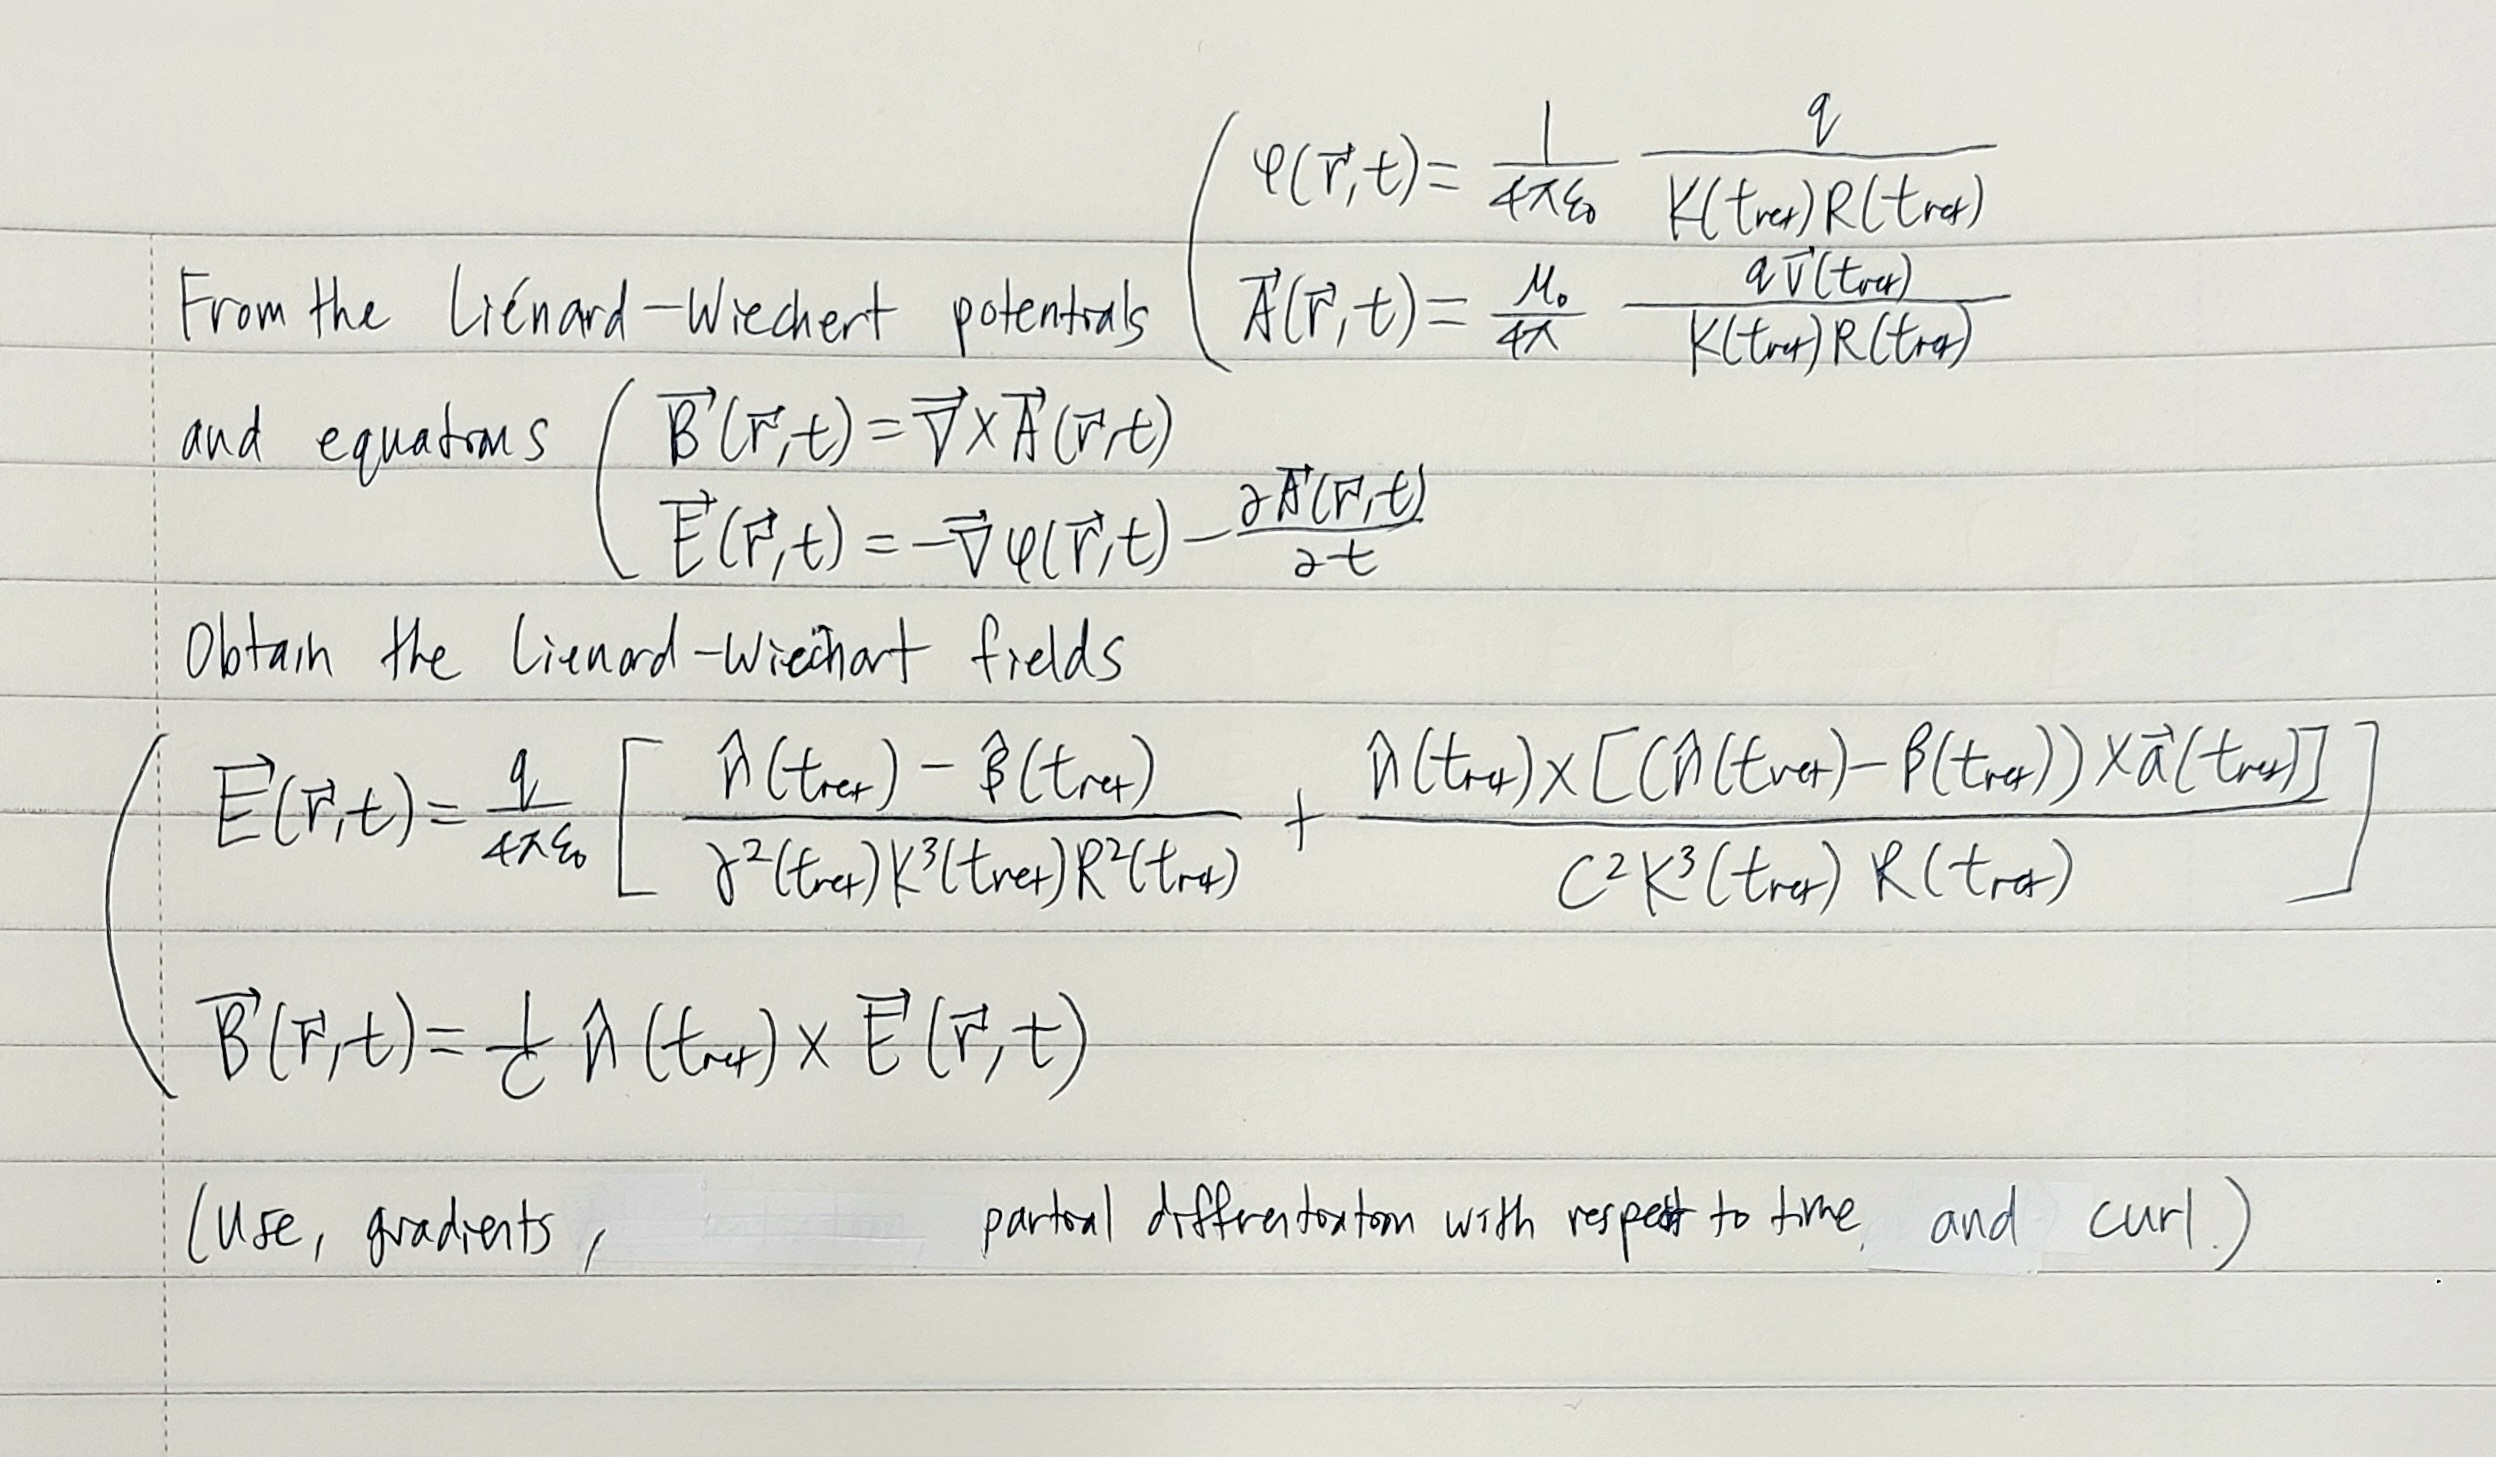 φ(r⃗,t) = 1/4πε₀ q/K(t_ret)R(t_ret)
From the Liénard-Wiechert potentials A⃗(r⃗,t) = μ₀/4π qv⃗(t_ret)/K(t_ret)R(t_ret)
and equations B⃗(r⃗,t) = ∇⃗×A⃗(r⃗,t)
E⃗(r⃗,t) = -∇⃗φ(r⃗,t) - ∂A⃗(r⃗,t)/∂t
Obtain the Lienard-Wiechart fields
E⃗(r⃗,t) = q/4πε₀ [ n̂(t_ret) - β̂(t_ret) / γ²(t_ret)K³(t_ret)R²(t_ret) + n̂(t_ret)×[(n̂(t_ret) - β(t_ret))×a⃗(t_ret)] / C²K³(t_ret) R(t_ret) ]
B⃗(r⃗,t) = 1/C n̂(t_ret) × E⃗(r⃗,t)
(Use, gradients, partial differentiation with respect to time, and curl.)